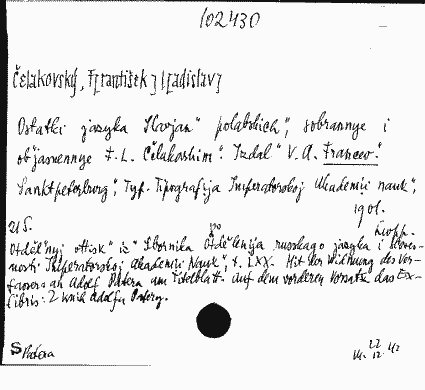 102430
Čelakovský, F[rantišek] L[adislav]
Ostatki jazyka Slavjan" polabskich", sobrannye i
ob"jasnennye F. L. Čelakovskim". Izdal" V. A. Francev".
Sanktpeterburg", Tip. Tipografija Imperatorskoj Akademii nauk",
1901.
21 S. Lwbr.
Otděl'nyj ottisk" iz" Sbornika Otdělenija russkago jazyka i sloves-
nosti Imperatorskoj Akademii Nauk", t. LXX. Mit der Widmung des Ver-
fassers an Adolf Patera am Titelblatt. Auf dem vorderen Vorsatz das Ex-
libris: Z knih Adolfa Patery.
S Patera
22
12. 42